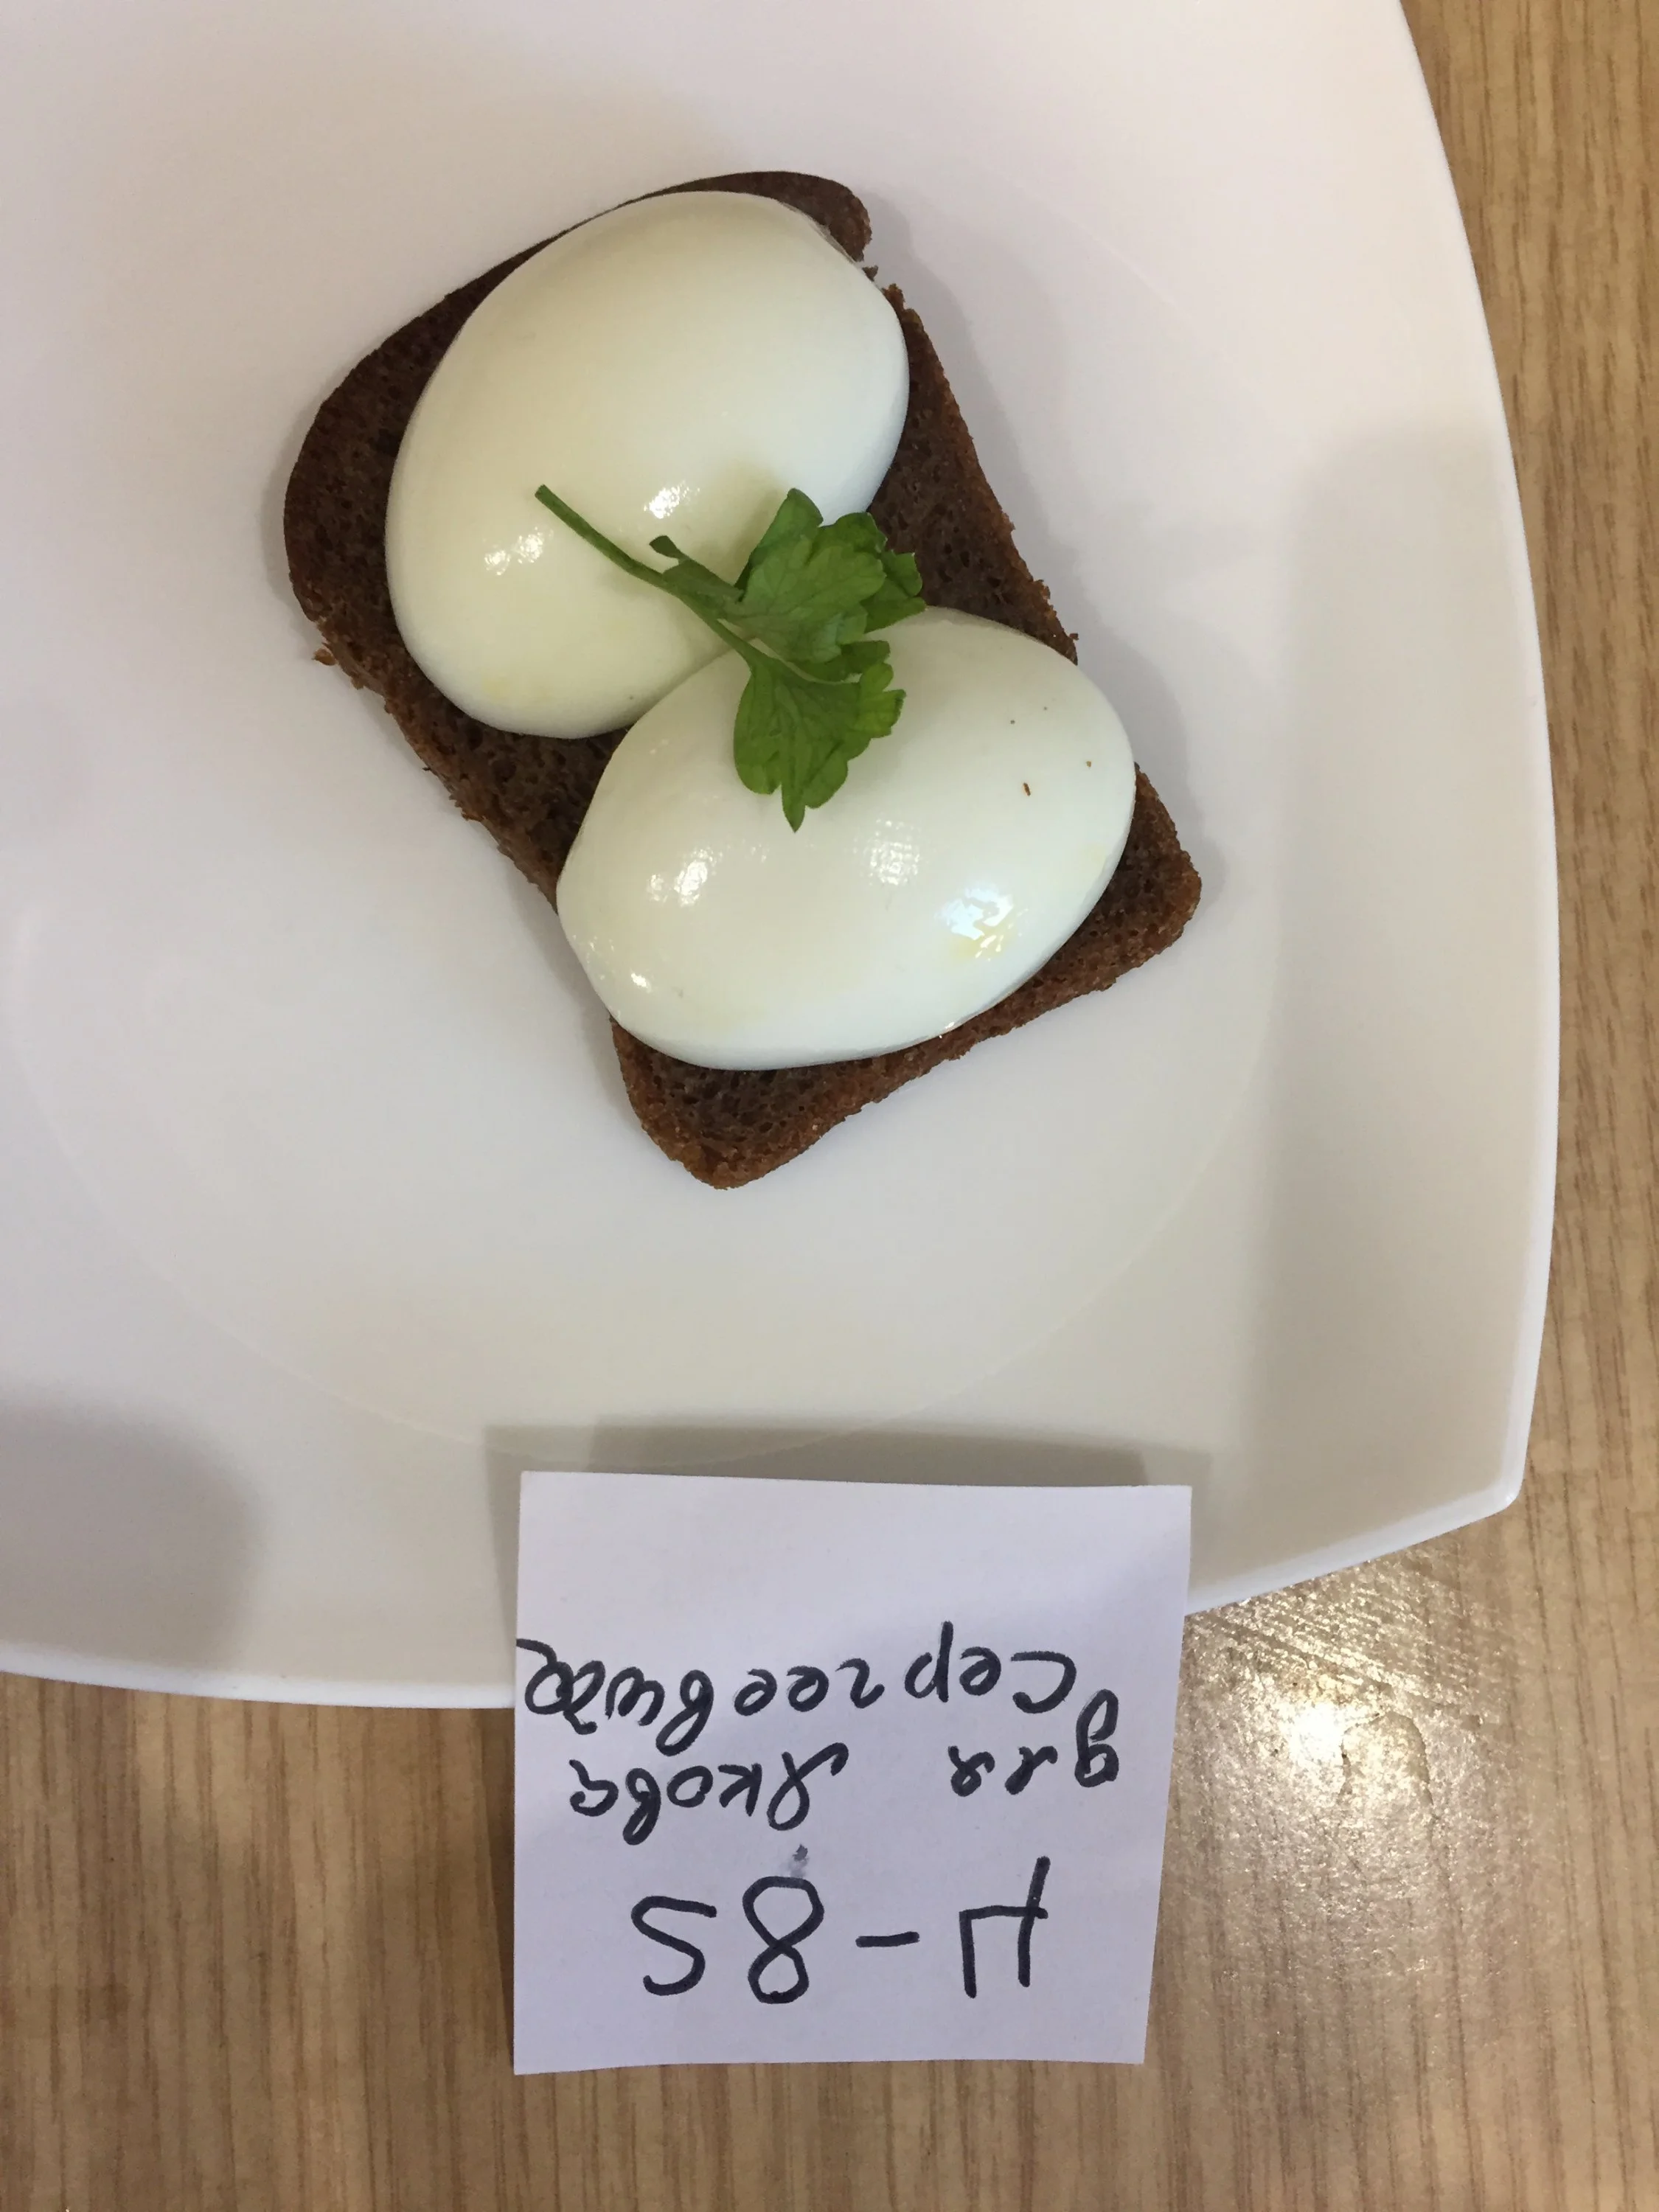 Ц-85
для Якова
Сергеевича